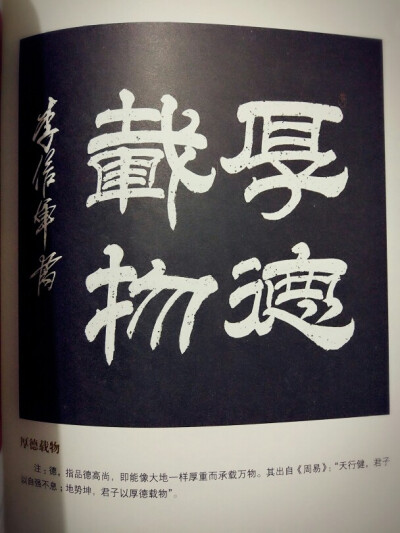 厚德
載物
李信軍書
厚德载物
注：德，指品德高尚，即能像大地一样厚重而承载万物。其出自《周易》：“天行健，君子
以自强不息；地势坤，君子以厚德载物”。